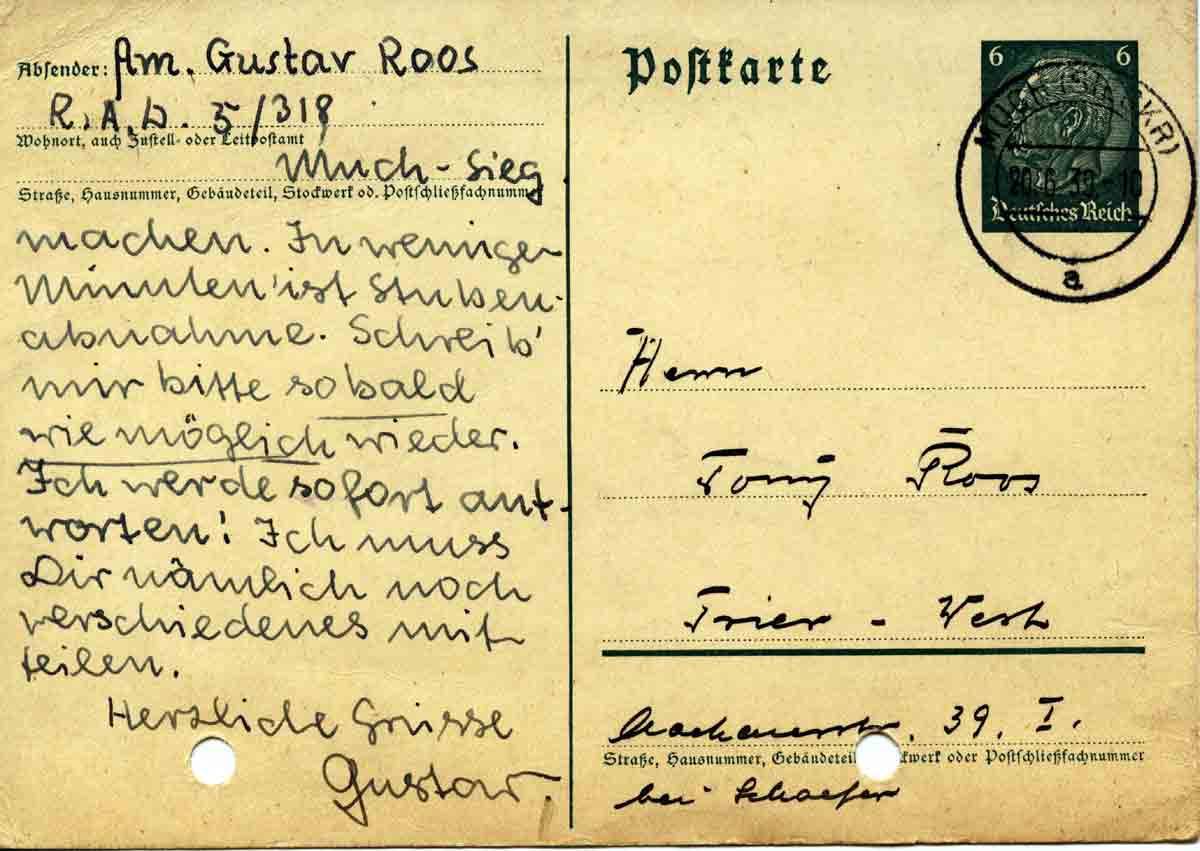 Absender: Am. Gustav Roos
R.A.D. 5/318
Wohnort, auch Zustell- oder Leitpostamt
Much-Sieg
Straße, Hausnummer, Gebäudeteil, Stockwerk od. Postschließfachnummer
machen. In weniger
Minuten ist Stuben-
abnahme. Schreib'
mir bitte sobald
wie möglich wieder.
Ich werde sofort ant-
worten! Ich muss
Dir nämlich noch
verschiedenes mit-
teilen.
Herzliche Grüsse
Gustav.
Postkarte
6 6
Deutsches Reich
MUCH (SIEGKR)
20.6.39. 10
a
Herrn
Tony Roos
Trier - West
Aachenerstr. 39. I.
Straße, Hausnummer, Gebäudeteil, Stockwerk oder Postschließfachnummer
bei Schaefer